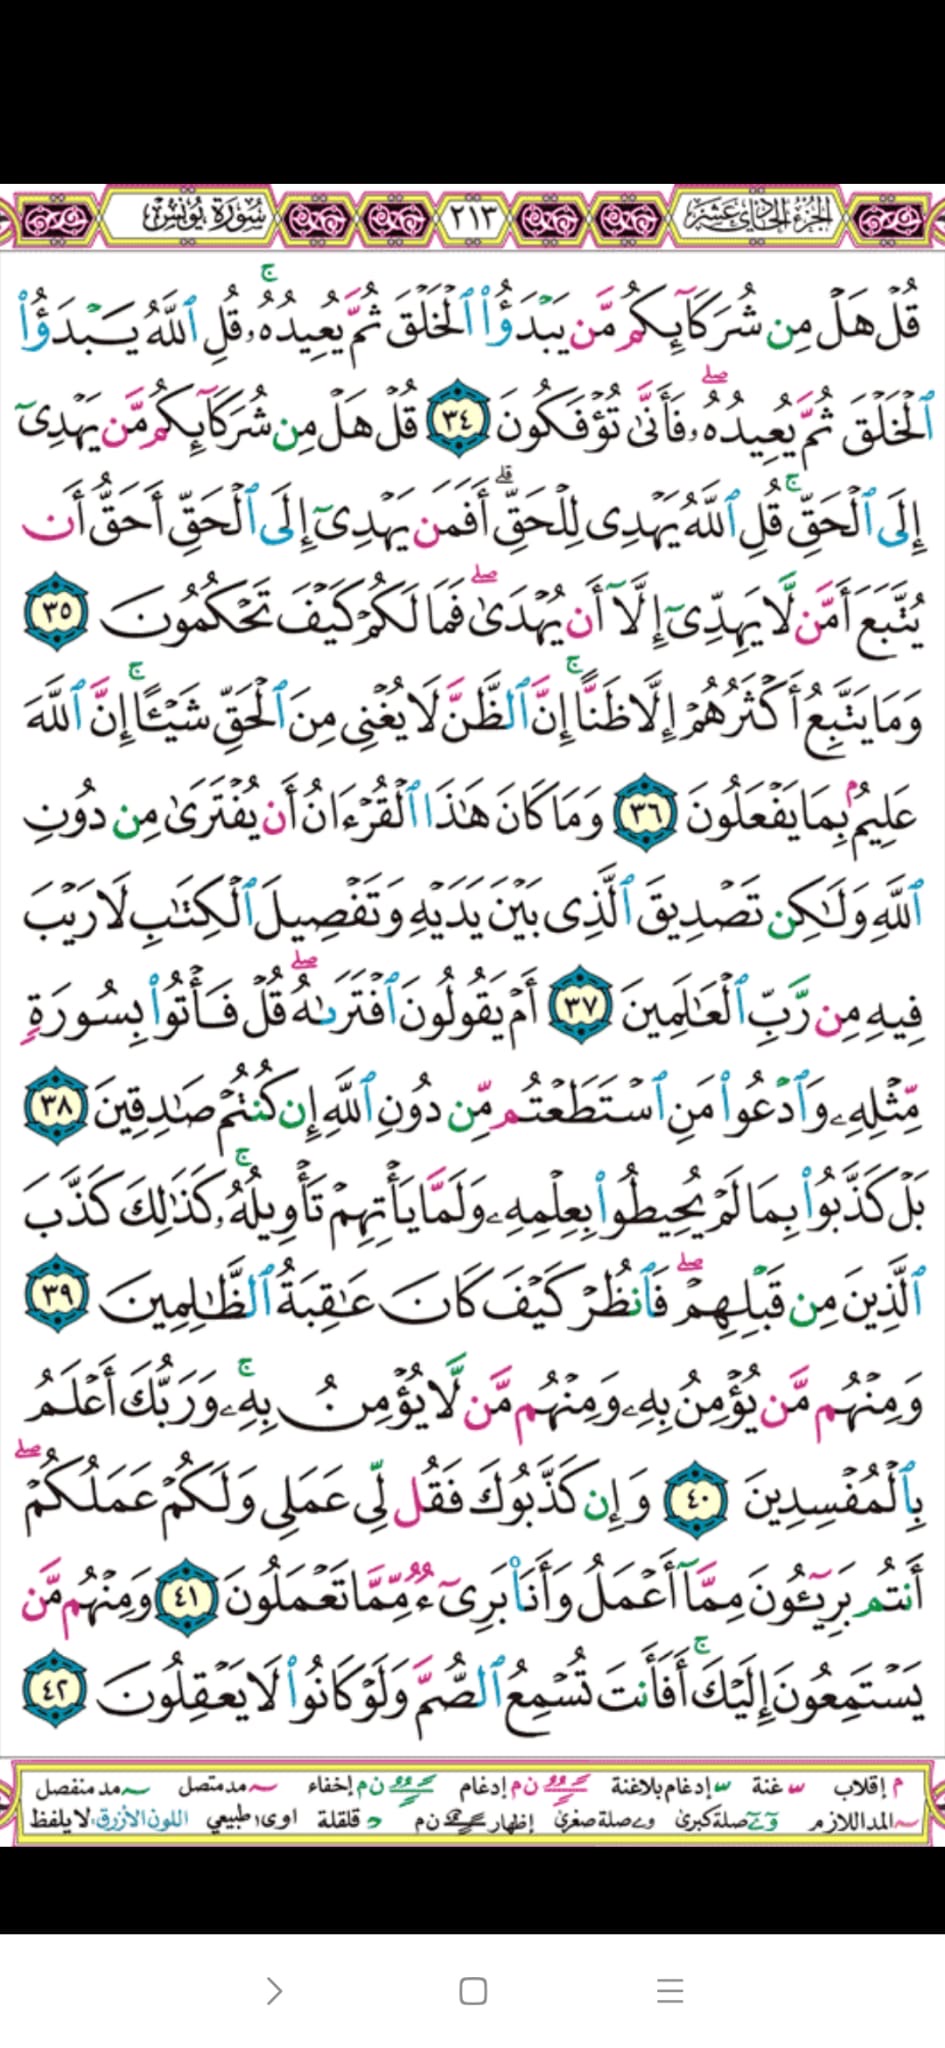 الجزء الحادي عشر ٢١٣ سورة يونس
قُلْ هَلْ مِن شُرَكَآئِكُم مَّن يَبْدَؤُا۟ ٱلْخَلْقَ ثُمَّ يُعِيدُهُۥ ۚ قُلِ ٱللَّهُ يَبْدَؤُا۟
ٱلْخَلْقَ ثُمَّ يُعِيدُهُۥ ۖ فَأَنَّىٰ تُؤْفَكُونَ ٣٤ قُلْ هَلْ مِن شُرَكَآئِكُم مَّن يَهْدِىٓ
إِلَى ٱلْحَقِّ ۚ قُلِ ٱللَّهُ يَهْدِى لِلْحَقِّ ۗ أَفَمَن يَهْدِىٓ إِلَى ٱلْحَقِّ أَحَقُّ أَن
يُتَّبَعَ أَمَّن لَّا يَهِدِّىٓ إِلَّآ أَن يُهْدَىٰ ۖ فَمَا لَكُمْ كَيْفَ تَحْكُمُونَ ٣٥
وَمَا يَتَّبِعُ أَكْثَرُهُمْ إِلَّا ظَنًّا ۚ إِنَّ ٱلظَّنَّ لَا يُغْنِى مِنَ ٱلْحَقِّ شَيْـًٔا ۚ إِنَّ ٱللَّهَ
عَلِيمٌۢ بِمَا يَفْعَلُونَ ٣٦ وَمَا كَانَ هَٰذَا ٱلْقُرْءَانُ أَن يُفْتَرَىٰ مِن دُونِ
ٱللَّهِ وَلَٰكِن تَصْدِيقَ ٱلَّذِى بَيْنَ يَدَيْهِ وَتَفْصِيلَ ٱلْكِتَٰبِ لَا رَيْبَ
فِيهِ مِن رَّبِّ ٱلْعَٰلَمِينَ ٣٧ أَمْ يَقُولُونَ ٱفْتَرَىٰهُ ۖ قُلْ فَأْتُوا۟ بِسُورَةٍ
مِّثْلِهِۦ وَٱدْعُوا۟ مَنِ ٱسْتَطَعْتُم مِّن دُونِ ٱللَّهِ إِن كُنتُمْ صَٰدِقِينَ ٣٨
بَلْ كَذَّبُوا۟ بِمَا لَمْ يُحِيطُوا۟ بِعِلْمِهِۦ وَلَمَّا يَأْتِهِمْ تَأْوِيلُهُۥ ۚ كَذَٰلِكَ كَذَّبَ
ٱلَّذِينَ مِن قَبْلِهِمْ ۖ فَٱنظُرْ كَيْفَ كَانَ عَٰقِبَةُ ٱلظَّٰلِمِينَ ٣٩
وَمِنْهُم مَّن يُؤْمِنُ بِهِۦ وَمِنْهُم مَّن لَّا يُؤْمِنُ بِهِۦ ۚ وَرَبُّكَ أَعْلَمُ
بِٱلْمُفْسِدِينَ ٤٠ وَإِن كَذَّبُوكَ فَقُل لِّى عَمَلِى وَلَكُمْ عَمَلُكُمْ ۖ
أَنتُم بَرِيٓـُٔونَ مِمَّآ أَعْمَلُ وَأَنَا۠ بَرِىٓءٌ مِّمَّا تَعْمَلُونَ ٤١ وَمِنْهُم مَّن
يَسْتَمِعُونَ إِلَيْكَ ۚ أَفَأَنتَ تُسْمِعُ ٱلصُّمَّ وَلَوْ كَانُوا۟ لَا يَعْقِلُونَ ٤٢
م إقلاب غنة إدغام بلاغنة ن م إدغام ن م إخفاء مد متصل مد منفصل
المد اللازم صلة كبرى صلة صغرى إظهار ن م قلقلة اوى طبيعي اللون الأزرق:لا يلفظ